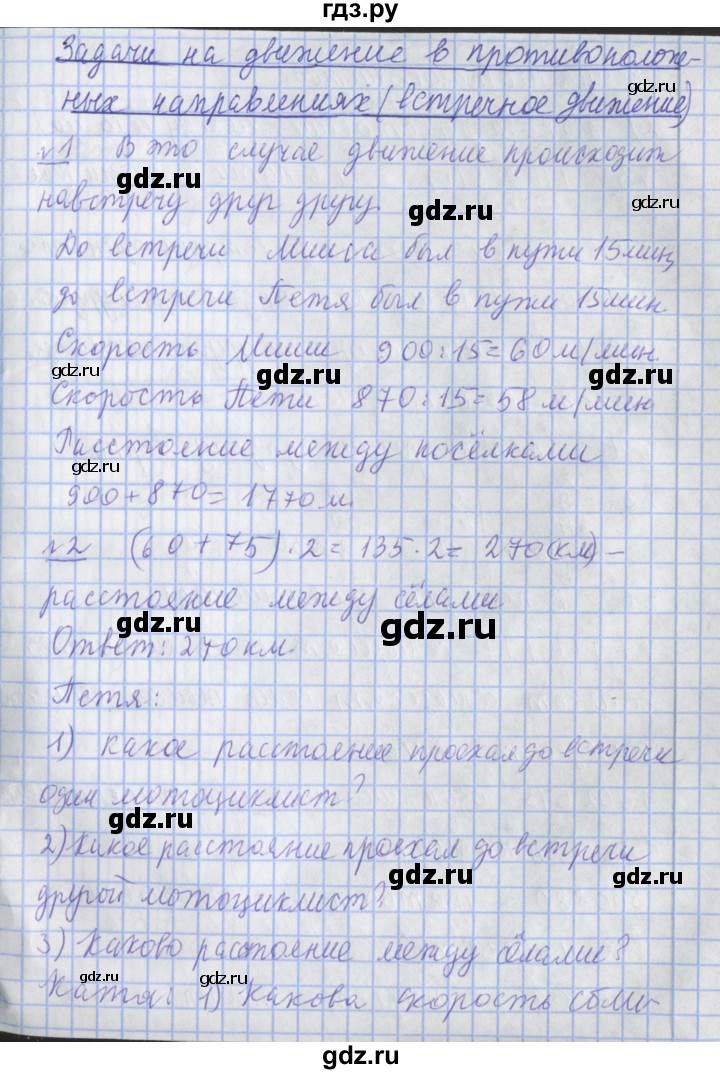 гдз.ру
Задачи на движение в противополож-
ных направлениях (встречное движение)
gdz.ru
№1 В это случае движение происходит
gdz.ru
gdz.ru
навстречу друг другу.
gdz.ru
До встречи Миша был в пути 15 мин,
до встречи Петя был в пути 15 мин
Скорость Миши 900:15=60 м/мин.
gdz.ru
gdz.ru
Скорость Пети 870:15=58 м/мин
Расстояние между посёлками
gdz.ru
900+870=1770 м.
gdz.ru
№2 (60+75)·2=135·2=270(км) –
расстояние между сёлами
gdz.ru
gdz.ru
Ответ: 270 км.
Петя:
1) Какое расстояние проехал до встречи
один мотоциклист?
gdz.ru
2) Какое расстояние проехал до встречи
gdz.ru
gdz.ru
другой мотоциклист?
3) Каково расстояние между сёлами?
gdz.ru
gdz.ru
Катя: 1) Какова скорость сбли-
gdz.ru